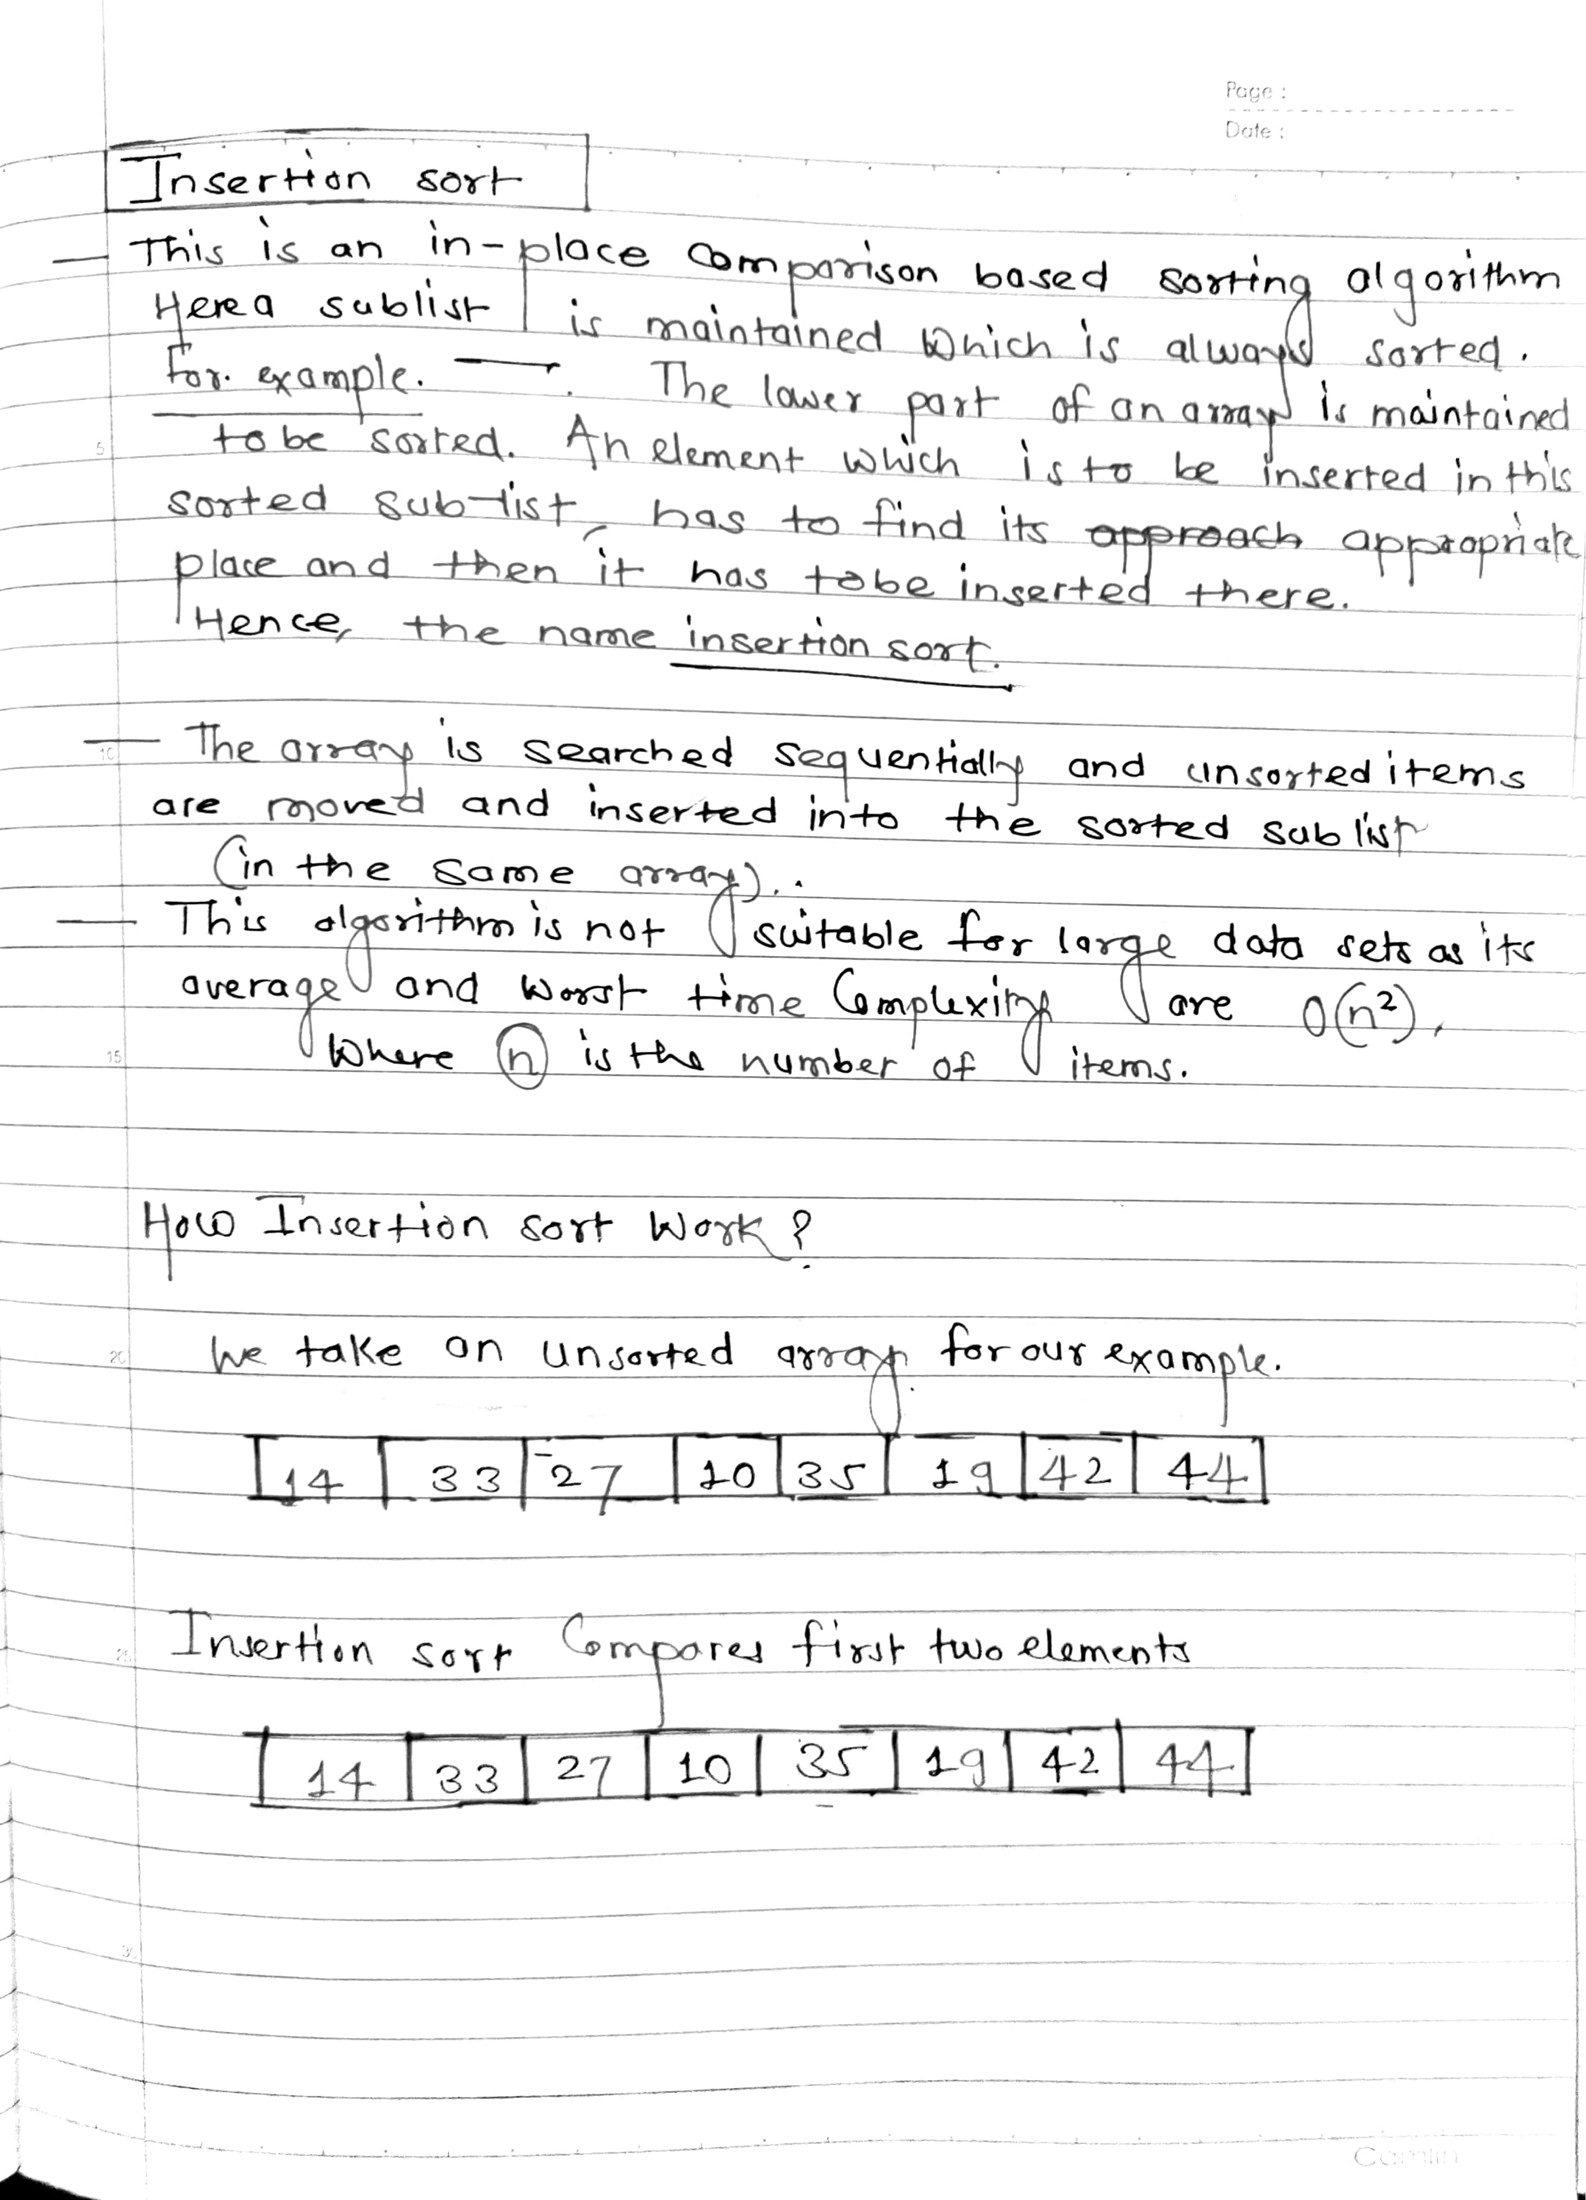 Page :
Date :
Insertion sort
— This is an in-place comparison based sorting algorithm
Here a sublist is maintained which is always sorted.
For. example. —. The lower part of an array is maintained
to be sorted. An element which is to be inserted in this
sorted sub-list, has to find its approach appropriate
place and then it has to be inserted there.
Hence, the name insertion sort.
— The array is searched sequentially and unsorted items
are moved and inserted into the sorted sub list
(in the same array)..
— This algorithm is not suitable for large data sets as its
average and worst time Complexity are O(n²),
Where n is the number of items.
How Insertion sort Work?
We take an unsorted array for our example.
14 33 27 10 35 19 42 44
Insertion sort Compares first two elements
14 33 27 10 35 19 42 44
5
10
15
20
25
30
Camlin